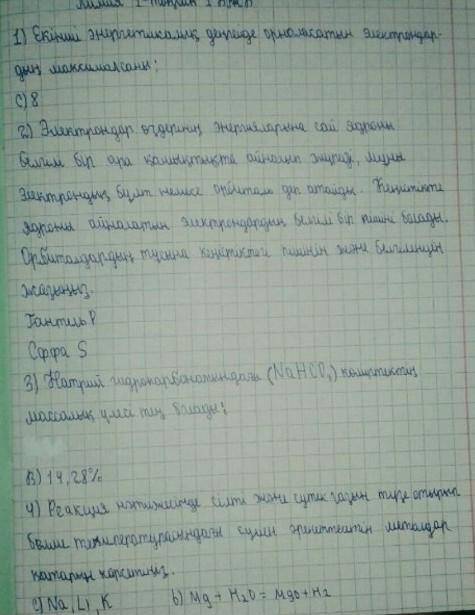 Химия 1-тоқсан
1) Екінші энергетикалық деңгейде орналасатын электрондар-
дың максимал саны:
C) 8
2) Электрондар өздерінің энергияларына сай ядроны
белгілі бір ара қашықтықта айналып жүреді, мұны
электрондық бұлт немесе орбиталь деп атайды. Кеңістікте
ядроны айналатын электрондардың белгілі бір пішіні болады.
Орбитальдардың тұсына кеңістіктегі пішінін және белгіленуін
жазыңыз.
Гантель P
Сфера S
3) Натрий гидрокарбонатындағы (NaHCO3) көміртектің
массалық үлесі тең болады:
B) 14,28%
4) Реакция нәтижесінде сілті және сутек газын түзе отырып
бөлме температурасындағы сумен әрекеттесетін металдар
қатарын көрсетіңіз.
c) Na, Li, K b) Mg + H2O = MgO + H2